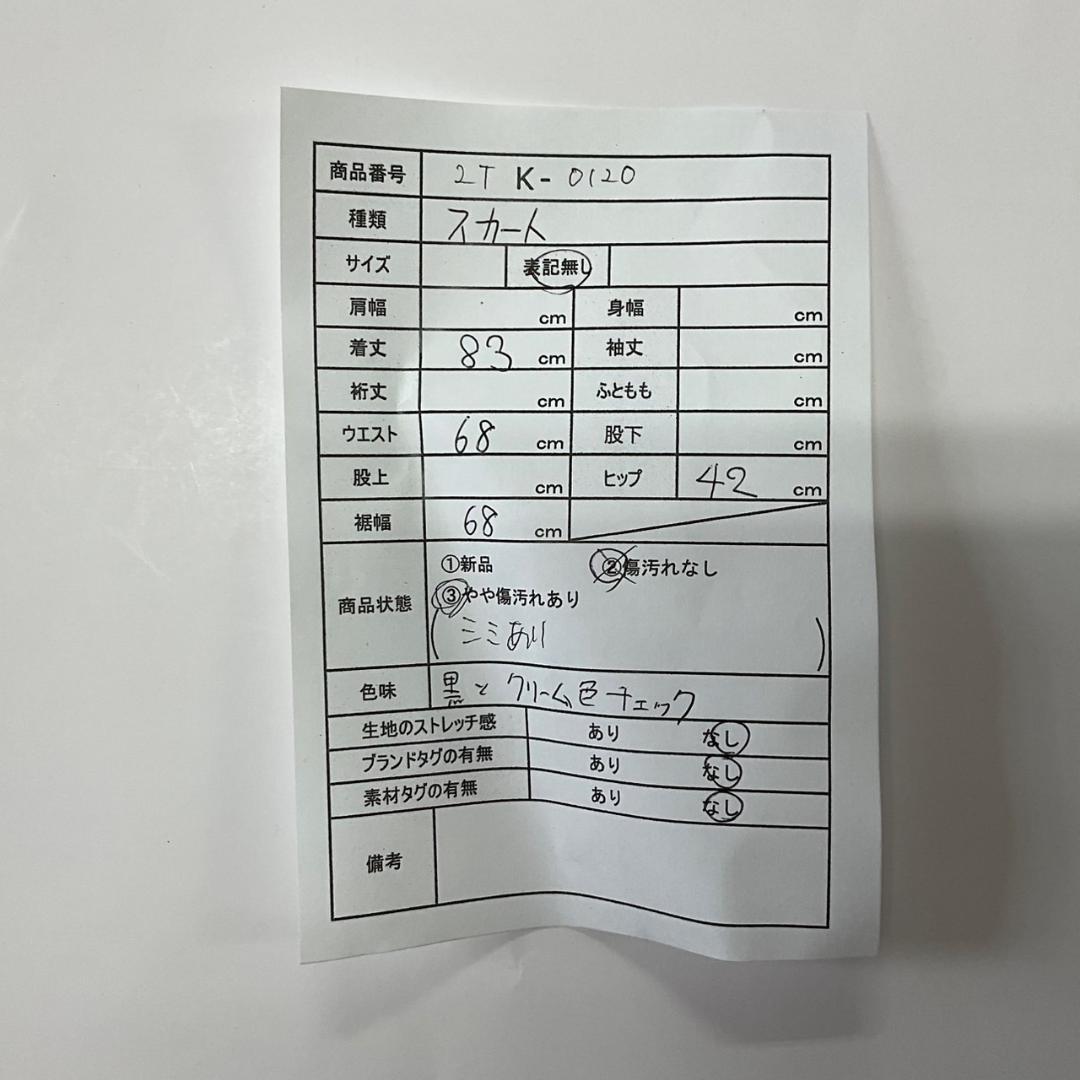 商品番号 2T K- 0120
種類 スカート
サイズ 表記無し
肩幅 cm 身幅 cm
着丈 83 cm 袖丈 cm
裄丈 cm ふともも cm
ウエスト 68 cm 股下 cm
股上 cm ヒップ 42 cm
裾幅 68 cm
①新品 ②傷汚れなし
商品状態 ③やや傷汚れあり
(シミあり)
色味 黒とクリーム色チェック
生地のストレッチ感 あり なし
ブランドタグの有無 あり なし
素材タグの有無 あり なし
備考